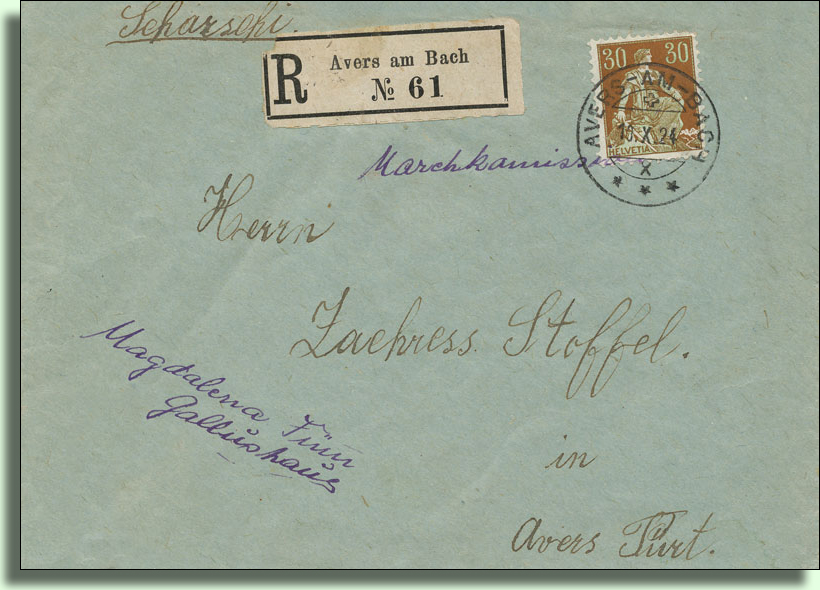 Scharschi.
R
Avers am Bach
№ 61
30 30
HELVETIA
AVERS-AM-BACH
X.24
X
Herrn
Zachress. Stoffel.
in
Avers Pürt.
Magdalena
Gallushaus